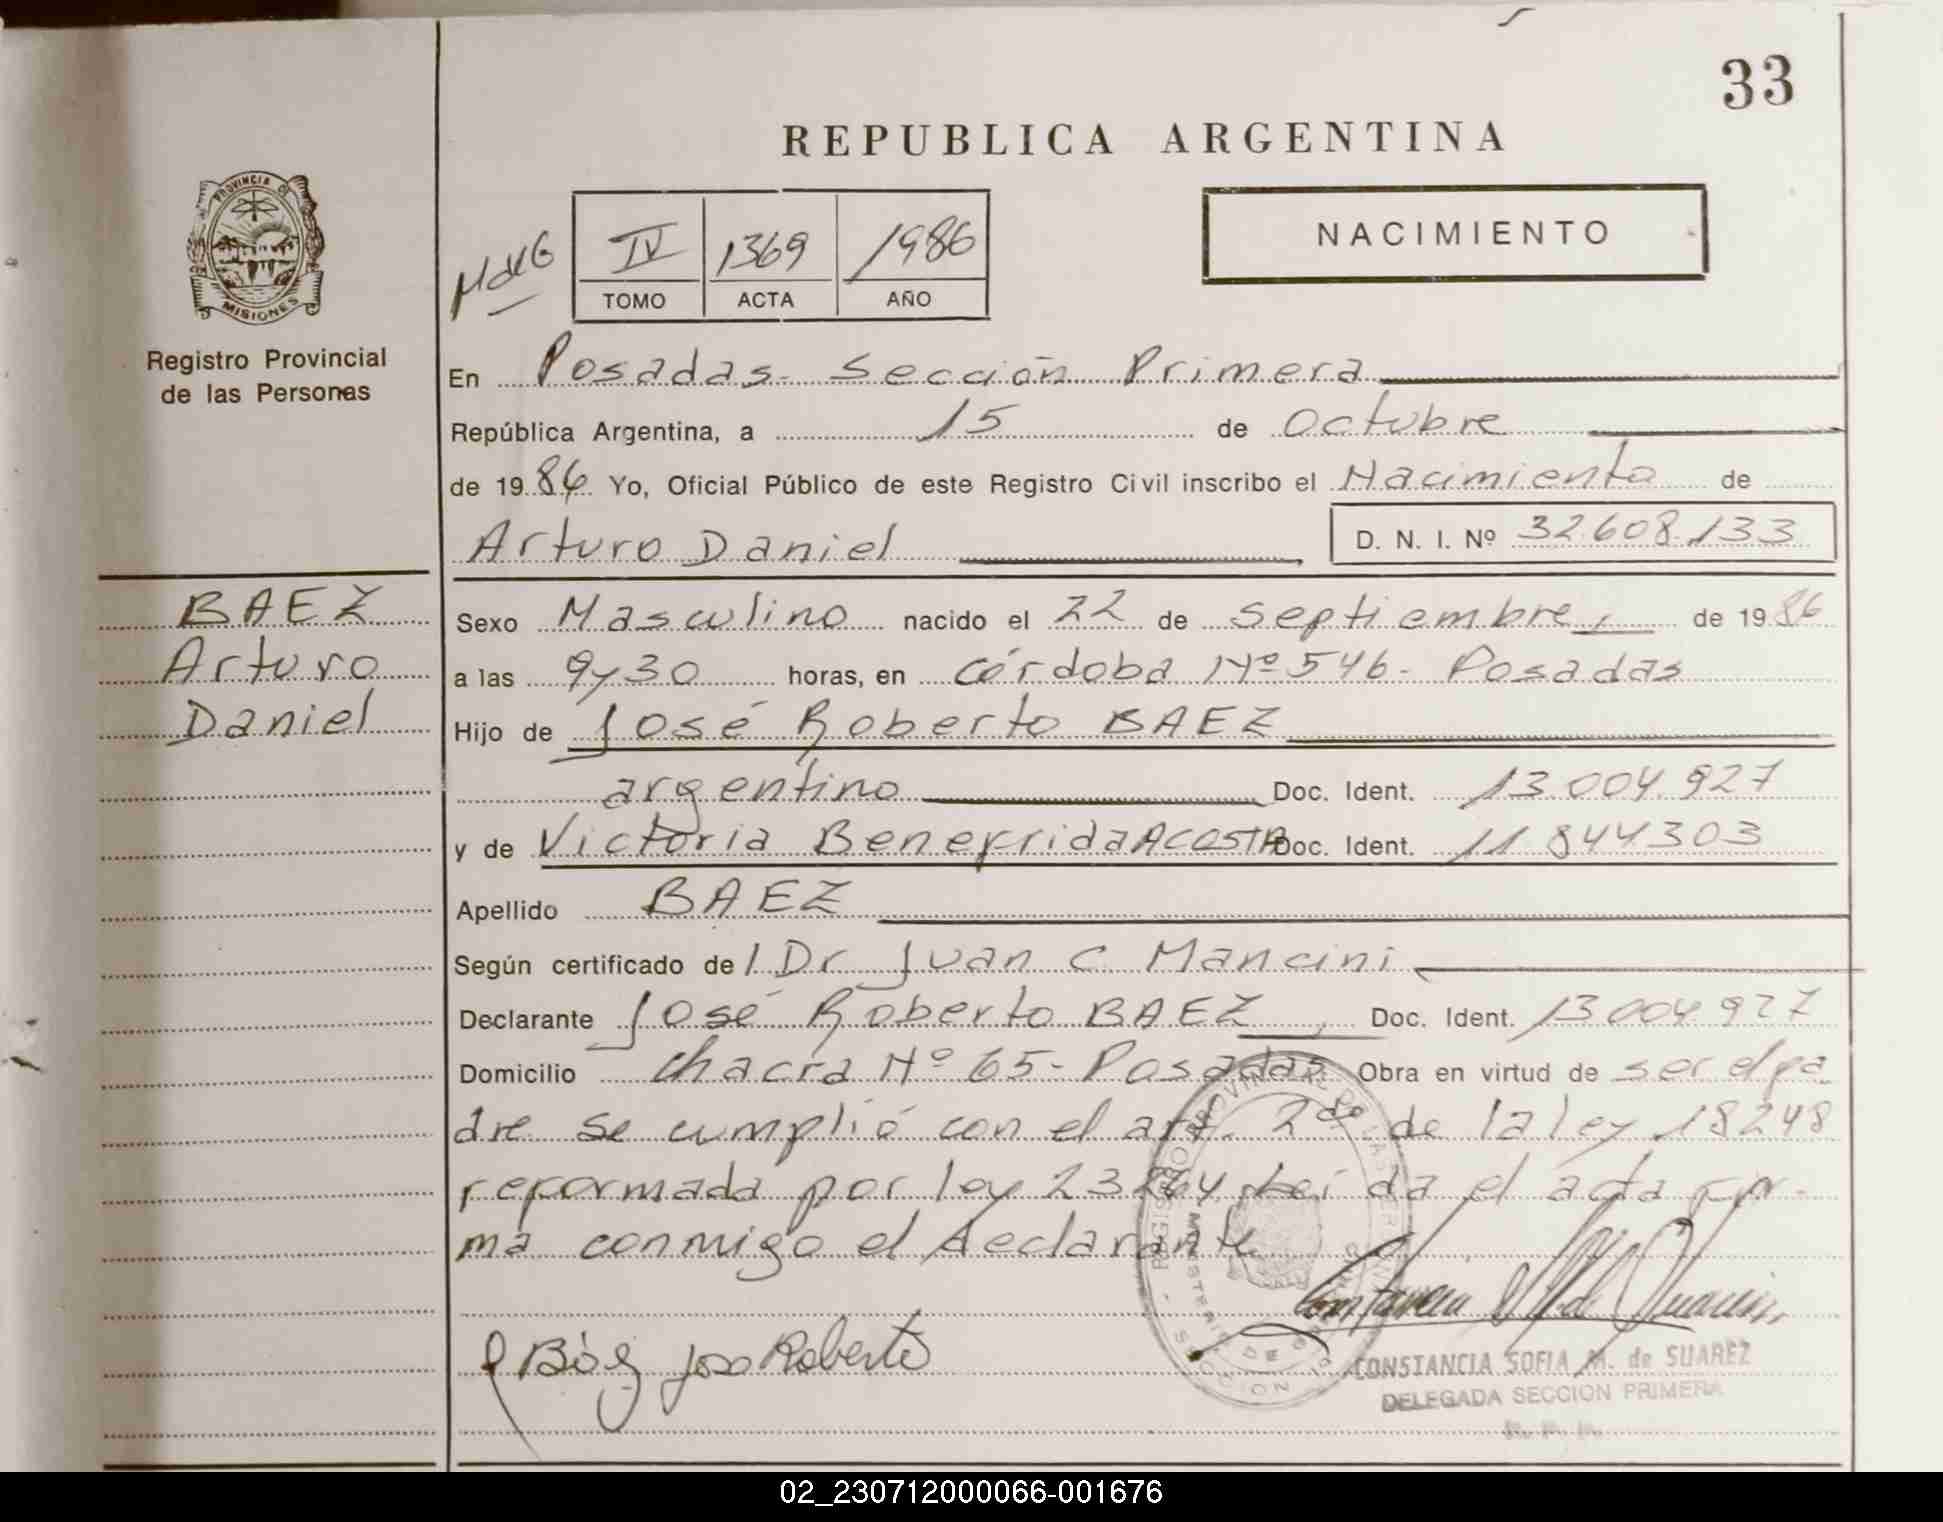 33
REPUBLICA ARGENTINA
PROVINCIA DE
MISIONES
Registro Provincial
de las Personas
IV 1369 1986
TOMO ACTA AÑO
NACIMIENTO
En Posadas - Sección Primera
República Argentina, a 15 de Octubre
de 1986 Yo, Oficial Público de este Registro Civil inscribo el Nacimiento de
Arturo Daniel
D. N. I. Nº 32.608.133
BAEZ
Arturo
Daniel
Sexo Masculino nacido el 22 de Septiembre, de 1986
a las 9 y 30 horas, en Córdoba Nº 546 - Posadas
Hijo de José Roberto BAEZ
argentino Doc. Ident. 13.004.927
y de Victoria Benefrida ACOSTA Doc. Ident. 11.844.303
Apellido BAEZ
Según certificado de l Dr Juan C Mancini
Declarante José Roberto BAEZ, Doc. Ident. 13.004.927
Domicilio Chacra Nº 65 - Posadas Obra en virtud de ser el pa
dre se cumplió con el art. 2do de la ley 18248
reformada por ley Leída el acta fir-
ma conmigo el declarante
Báez Jose Roberto
CONSTANCIA SOFIA M. de SUAREZ
DELEGADA SECCION PRIMERA
R. P. P.
02_230712000066-001676